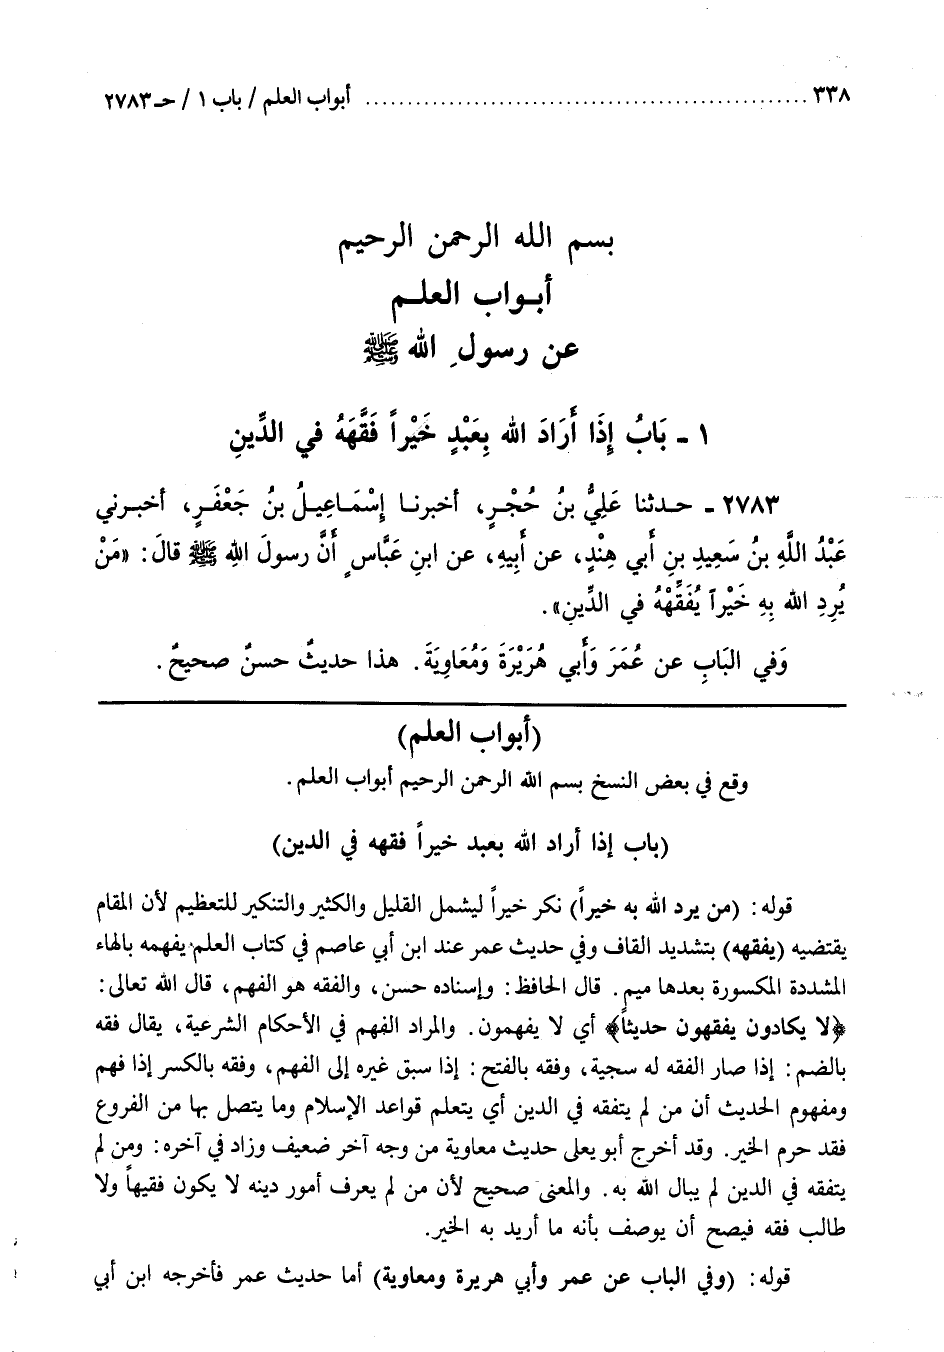 ٣٣٨ ........................................................ أبواب العلم / باب ١ / حـ ٢٧٨٣
بسم الله الرحمن الرحيم
أبـواب العلـم
عن رسولِ الله ﷺ
١ ـ بَابُ إِذَا أَرَادَ الله بِعَبْدٍ خَيْراً فَقَّهَهُ في الدِّينِ
٢٧٨٣ ـ حـدثنا عَلِيُّ بنُ حُجْـرٍ، أخبرنـا إِسْمَـاعِيـلُ بنُ جَعْفَـرٍ، أخبـرني
عَبْدُ اللَّهِ بنُ سَعِيدِ بنِ أَبي هِنْدٍ، عن أَبِيهِ، عن ابنِ عَبَّاسٍ أَنَّ رسولَ اللهِ ﷺ قالَ: «مَنْ
يُرِدِ الله بِهِ خَيْراً يُفَقِّهْهُ في الدِّينِ».
وَفي البَابِ عن عُمَرَ وَأَبي هُرَيْرَةَ وَمُعَاوِيَةَ. هذا حديثٌ حسنٌ صحيحٌ.
(أبواب العلم)
وقع في بعض النسخ بسم الله الرحمن الرحيم أبواب العلم.
(باب إذا أراد الله بعبد خيراً فقهه في الدين)
قوله: (من يرد الله به خيراً) نكر خيراً ليشمل القليل والكثير والتنكير للتعظيم لأن المقام
يقتضيه (يفقهه) بتشديد القاف وفي حديث عمر عند ابن أبي عاصم في كتاب العلم يفهمه بالهاء
المشددة المكسورة بعدها ميم. قال الحافظ: وإسناده حسن، والفقه هو الفهم، قال الله تعالى:
﴿لا يكادون يفقهون حديثاً﴾ أي لا يفهمون. والمراد الفهم في الأحكام الشرعية، يقال فقه
بالضم: إذا صار الفقه له سجية، وفقه بالفتح: إذا سبق غيره إلى الفهم، وفقه بالكسر إذا فهم
ومفهوم الحديث أن من لم يتفقه في الدين أي يتعلم قواعد الإسلام وما يتصل بها من الفروع
فقد حرم الخير. وقد أخرج أبو يعلى حديث معاوية من وجه آخر ضعيف وزاد في آخره: ومن لم
يتفقه في الدين لم يبال الله به. والمعنى صحيح لأن من لم يعرف أمور دينه لا يكون فقيهاً ولا
طالب فقه فيصح أن يوصف بأنه ما أريد به الخير.
قوله: (وفي الباب عن عمر وأبي هريرة ومعاوية) أما حديث عمر فأخرجه ابن أبي